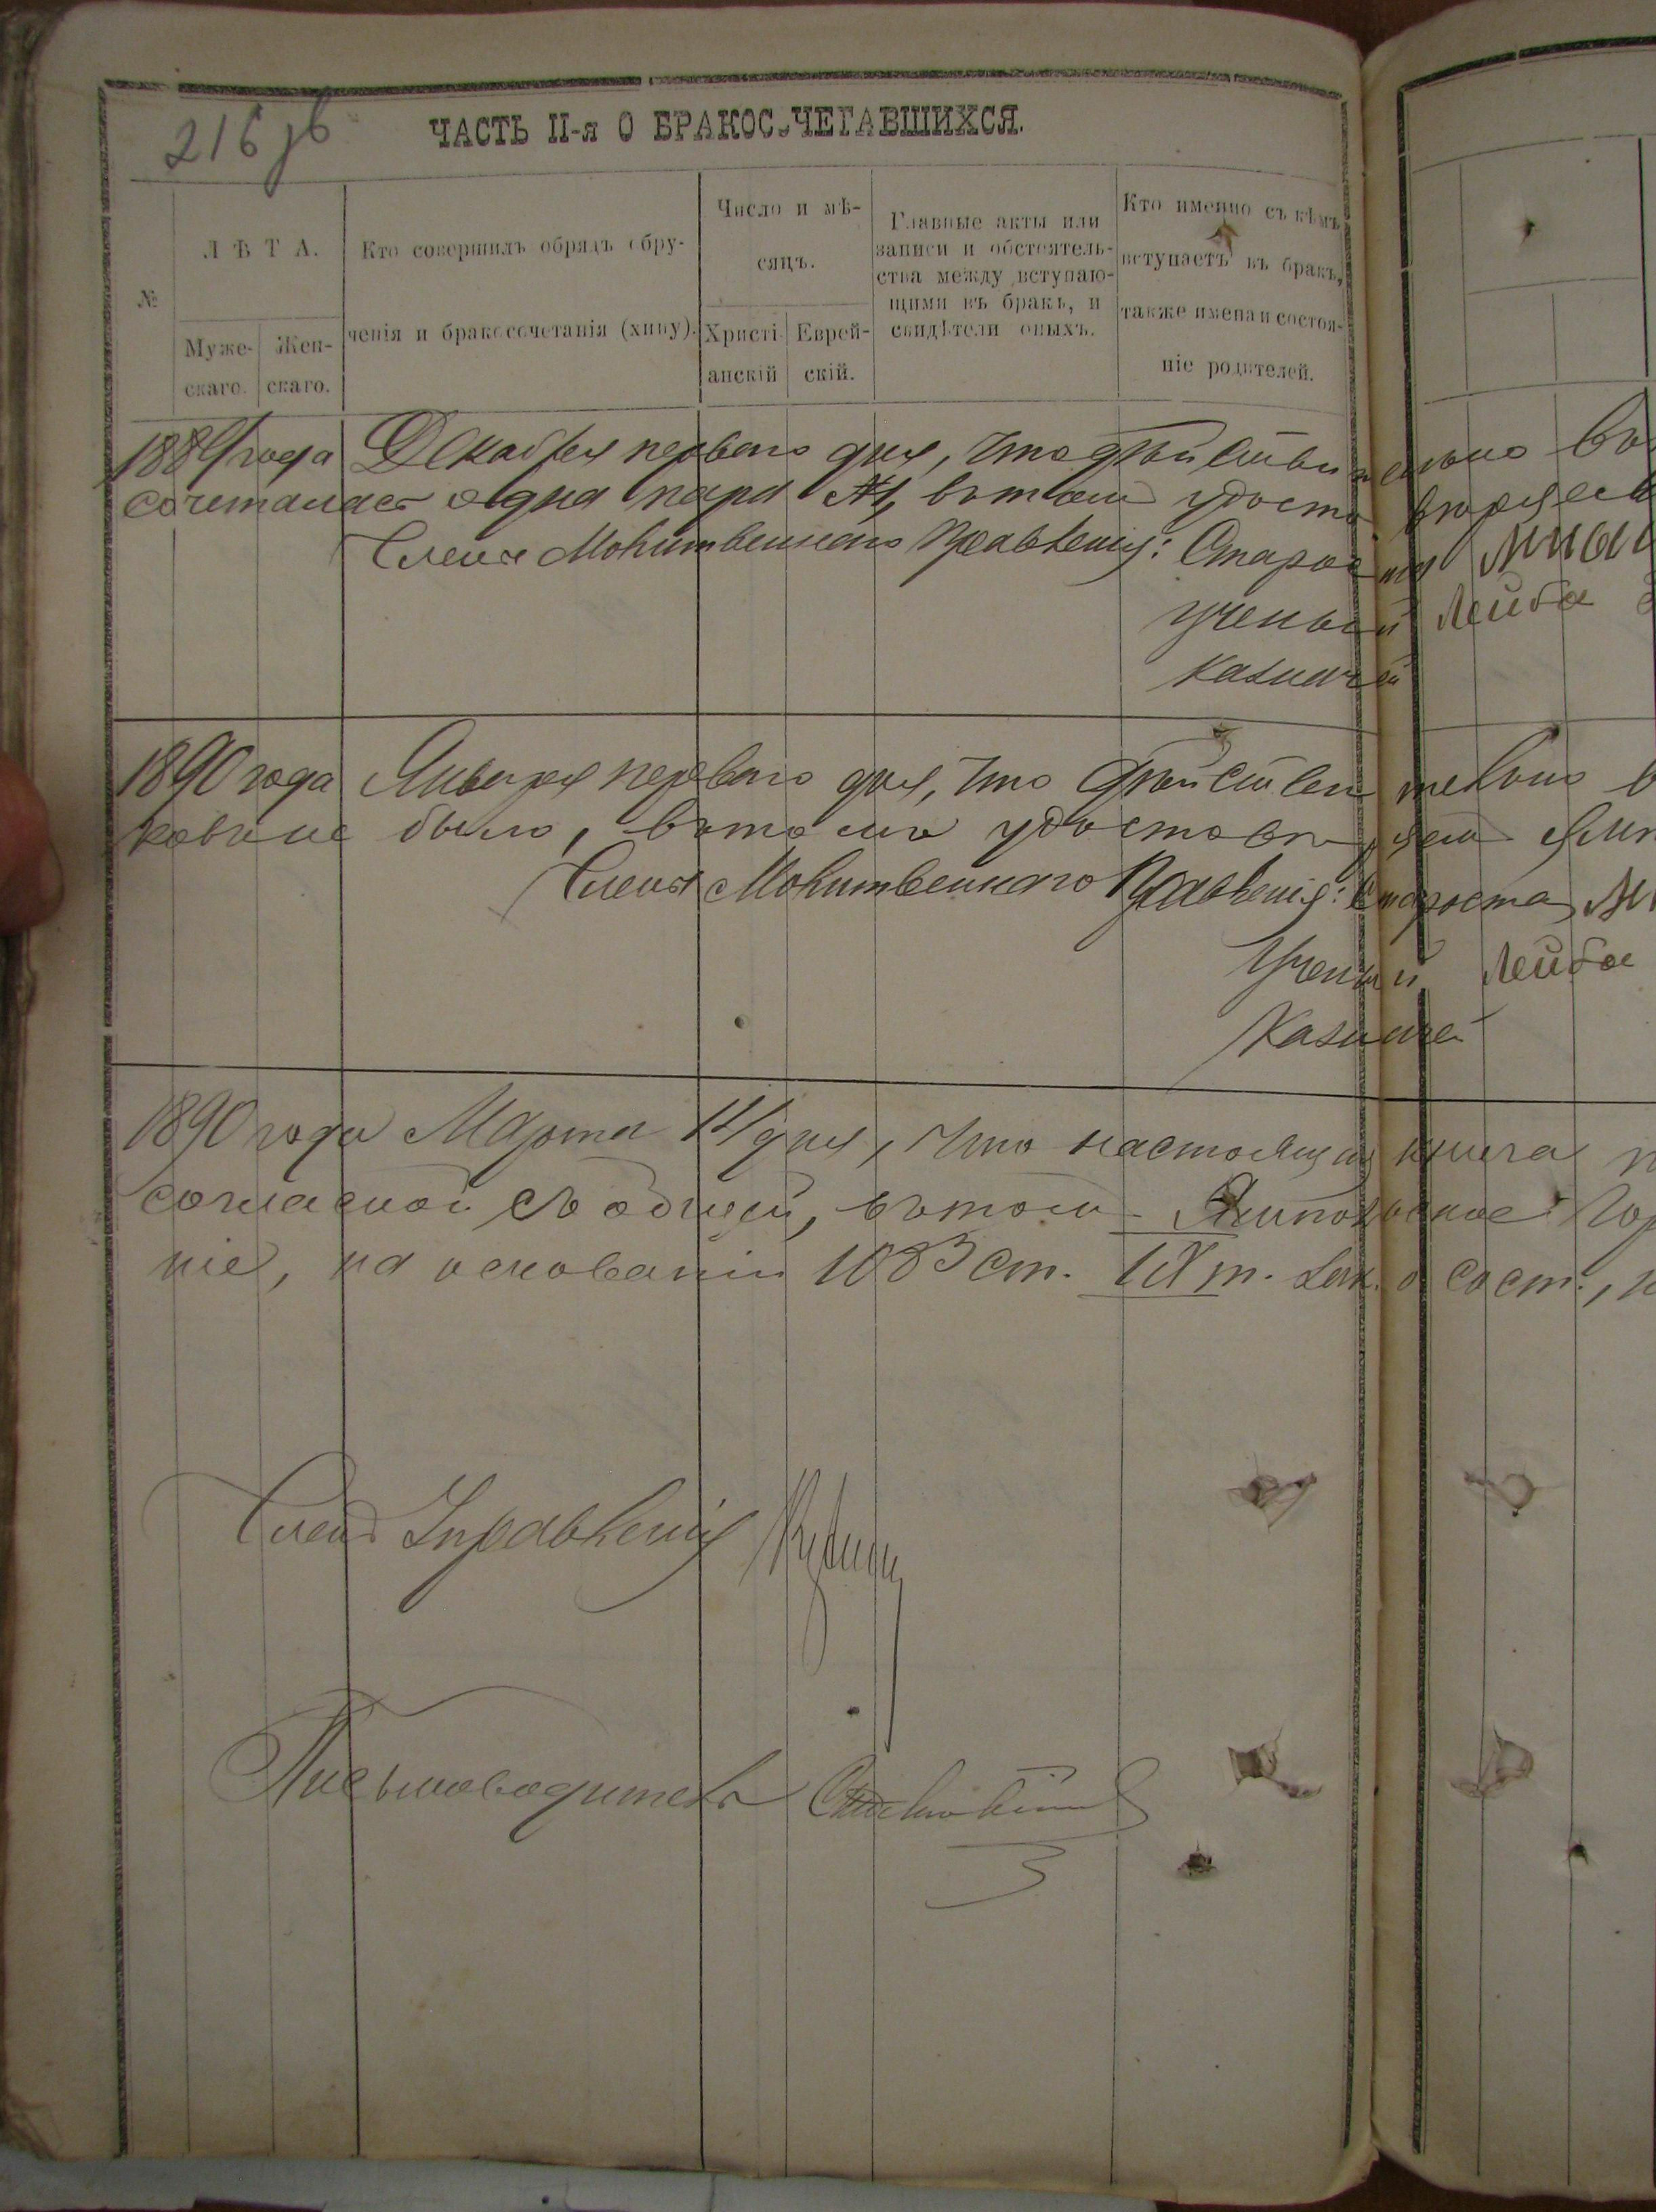 216 об
ЧАСТЬ II-я О БРАКОСОЧЕТАВШИХСЯ.
№
ЛѢТА.
Муже-
скаго.
Жен-
скаго.
Кто совершилъ обрядъ обру-
ченія и бракосочетанія (хипу).
Число и мѣ-
сяцъ.
Христі
анскій
Еврей-
скій.
Главные акты или
записи и обстоятель-
ства между вступаю-
щими въ бракъ, и
свидѣтели оныхъ.
Кто именно съ кѣмъ
вступаетъ въ бракъ,
также имена и состоя-
ніе родителей.
1889 года Декабря перваго дня, что дѣйствительно
сочеталась одна пара №1, въ томъ удостовѣряемъ
Члены Молитвеннаго Правленія: Староста
Ученый Лейба
Казначей
1890 года Января перваго дня, что дѣйствительно
было, въ томъ удостовѣряемъ
Члены Молитвеннаго Правленія: Староста
Ученый Лейба
Казначей
1890 года Марта 14 дня, что настоящая книга
согласной съ общей, въ томъ Ямпольское
ніе, на основаніи 1083 ст. IX т. Зак. о сост.,
Членъ Управленія
Письмоводитель